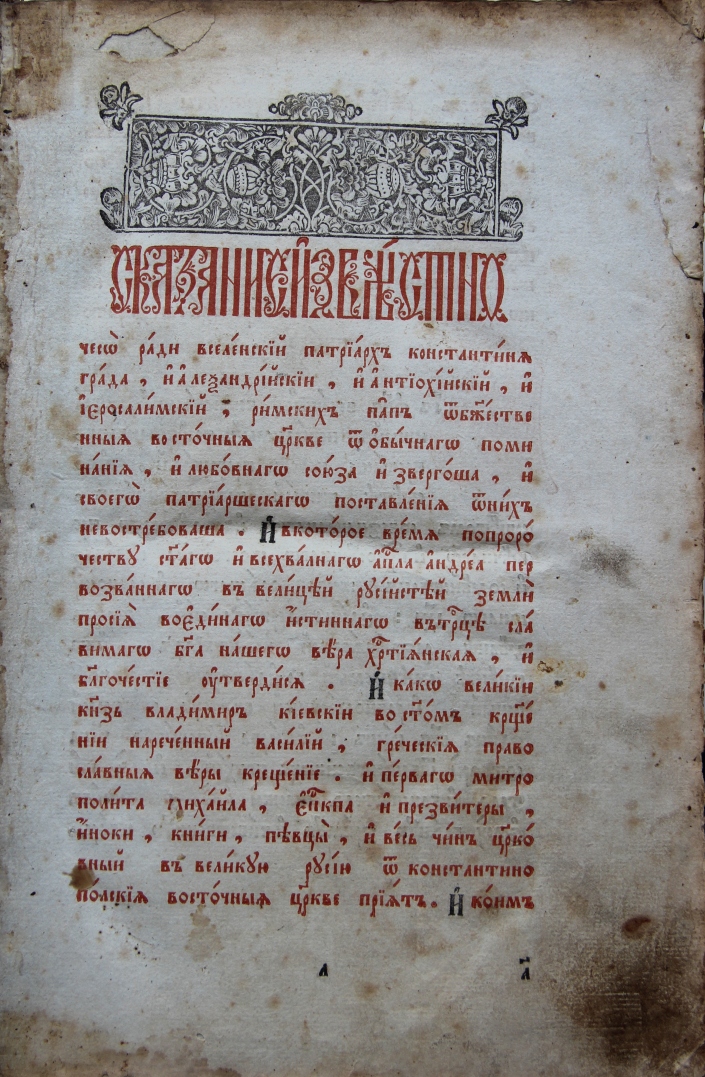 СКАЗАНИЕ И҆ЗВѢ́СТНО
чесѡ̀ ра́ди вселе́нскїй патрїа́рхъ константи́нѧ
гра́да , и҆ а҆леѯандрі́йскїи , и҆ а҆нтїохі́йскїй , и҆
і҆еросали́мскїй , ри́мскихъ па́пъ ѿ бж҃е́стве
нныѧ восто́чныѧ цр҃кве ѿ ѻ҆бы́чнагѡ поми
на́нїѧ , и҆ любо́внагѡ сою́за и҆звергóша , и҆
своегѡ̀ патрїа́ршескагѡ поставле́нїѧ ѿни́хъ
невостре́боваша . И҆ вкото́рое вре́мѧ попроро́
честву ст҃а́гѡ и҆ всехва́лнагѡ а҆п҃ла а҆ндре́а пер
возва́ннагѡ въ вели́цѣй рꙋсі́йстѣй землѝ
просїѧ̀ воє҆ди́нагѡ и҆́стиннагѡ въ трⷪ҇цѣ сла́
вимагѡ бг҃а на́шегѡ вѣ́ра хрⷭ҇тїѧ́нскаѧ , и҆
бл҃гоче́стїе оу҆тверди́сѧ . И҆ ка́кѡ вели́кїи
кн҃зь влади́миръ кі́евскїи во ст҃о́мъ крщ҃е́
нїи нарече́нный васи́лїй , гре́ческїѧ право
сла́вныѧ вѣ́ры креще́нїе . и҆ пе́рвагѡ митро
поли́та михаи́ла , є҆пⷭ҇кпа и҆ презви́теры ,
и҆́ноки , кни́ги , пѣвцы̀ , и҆ ве́сь чи́нъ цр҃ко́
вный въ вели́кꙋю рꙋсі́ю ѿ константино
по́лскїѧ восто́чныѧ цр҃кве прїѧ́тъ . И҆ ко́имъ
л а҃